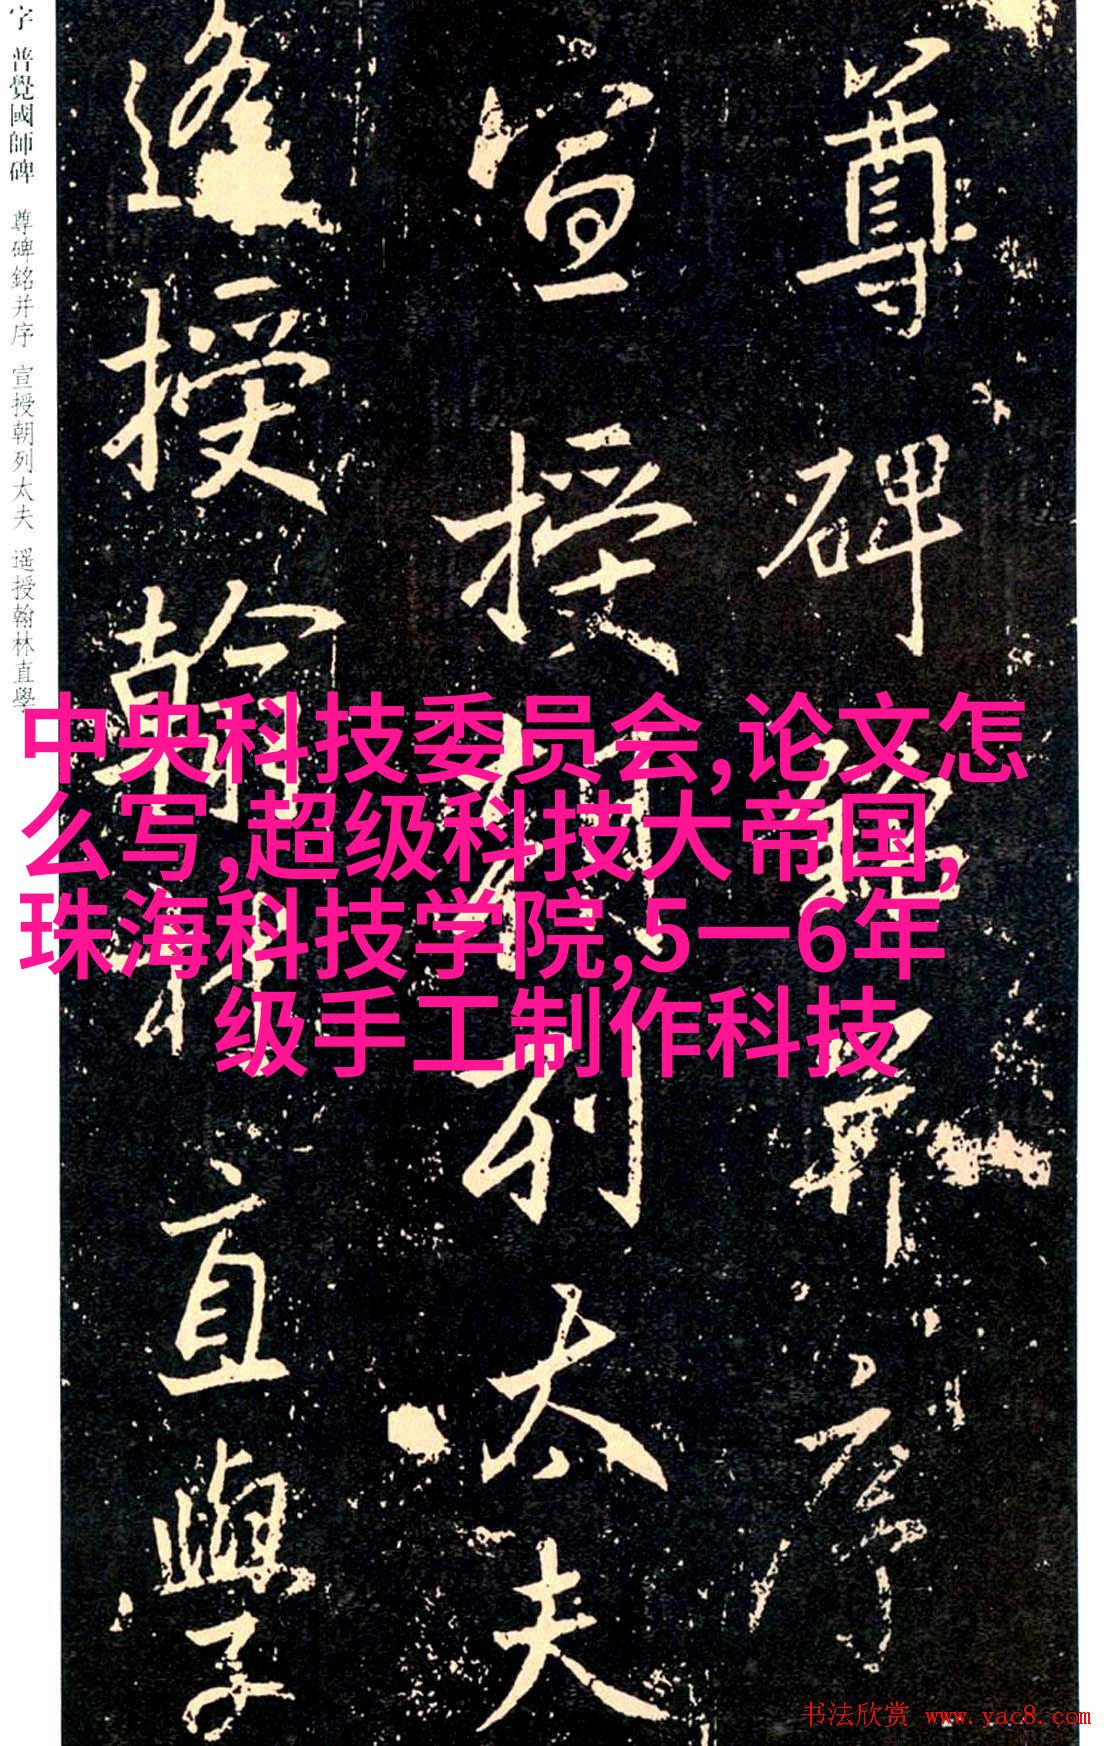 尊碑銘并序
宣授朝列太夫
遥授翰林直學
字 普覺國師碑 尊碑銘并序 宣授朝列太夫 遥授翰林直學
中央科技委员会,论文怎
么写,超级科技大帝国,
珠海科技学院,5一6年
级手工制作科技
书法欣赏 www.yac8.com